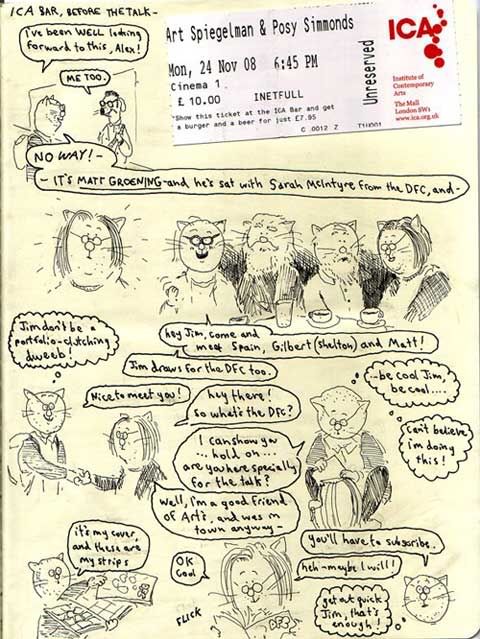 ICA BAR, BEFORE THE TALK-
I've been WELL looking
forward to this, Alex!
ME TOO.
Art Spiegelman & Posy Simmonds
Mon, 24 Nov 08 6:45 PM
Cinema 1
£ 10.00 INETFULL
"Show this ticket at the ICA Bar and get
a burger and a beer for just £7.95
C 0012 Z
Unreserved
ICA
Institute of
Contemporary
Arts
The Mall
London SW1
www.ica.org.uk
NO WAY!-
- IT'S MATT GROENING-and he's sat with Sarah McIntyre from the DFC, and-
hey Jim, come and
meet Spain, Gilbert (Shelton) and Matt!
Jim draws for the DFC too.
Jim don't be a
portfolio-clutching
dweeb!
Nice to meet you!
hey there!
So what's the DFC?
...be cool Jim,
be cool....
Can't believe
i'm doing
this!
I can show you
... hold on ...
are you here specially
for the talk?
Well, i'm a good friend
of Art's, and was in
town anyway-
it's my cover,
and these are
my strips
OK
Cool
FLICK
DFC
you'll have to subscribe.
heh-maybe I will!
get out quick
Jim, that's
enough!